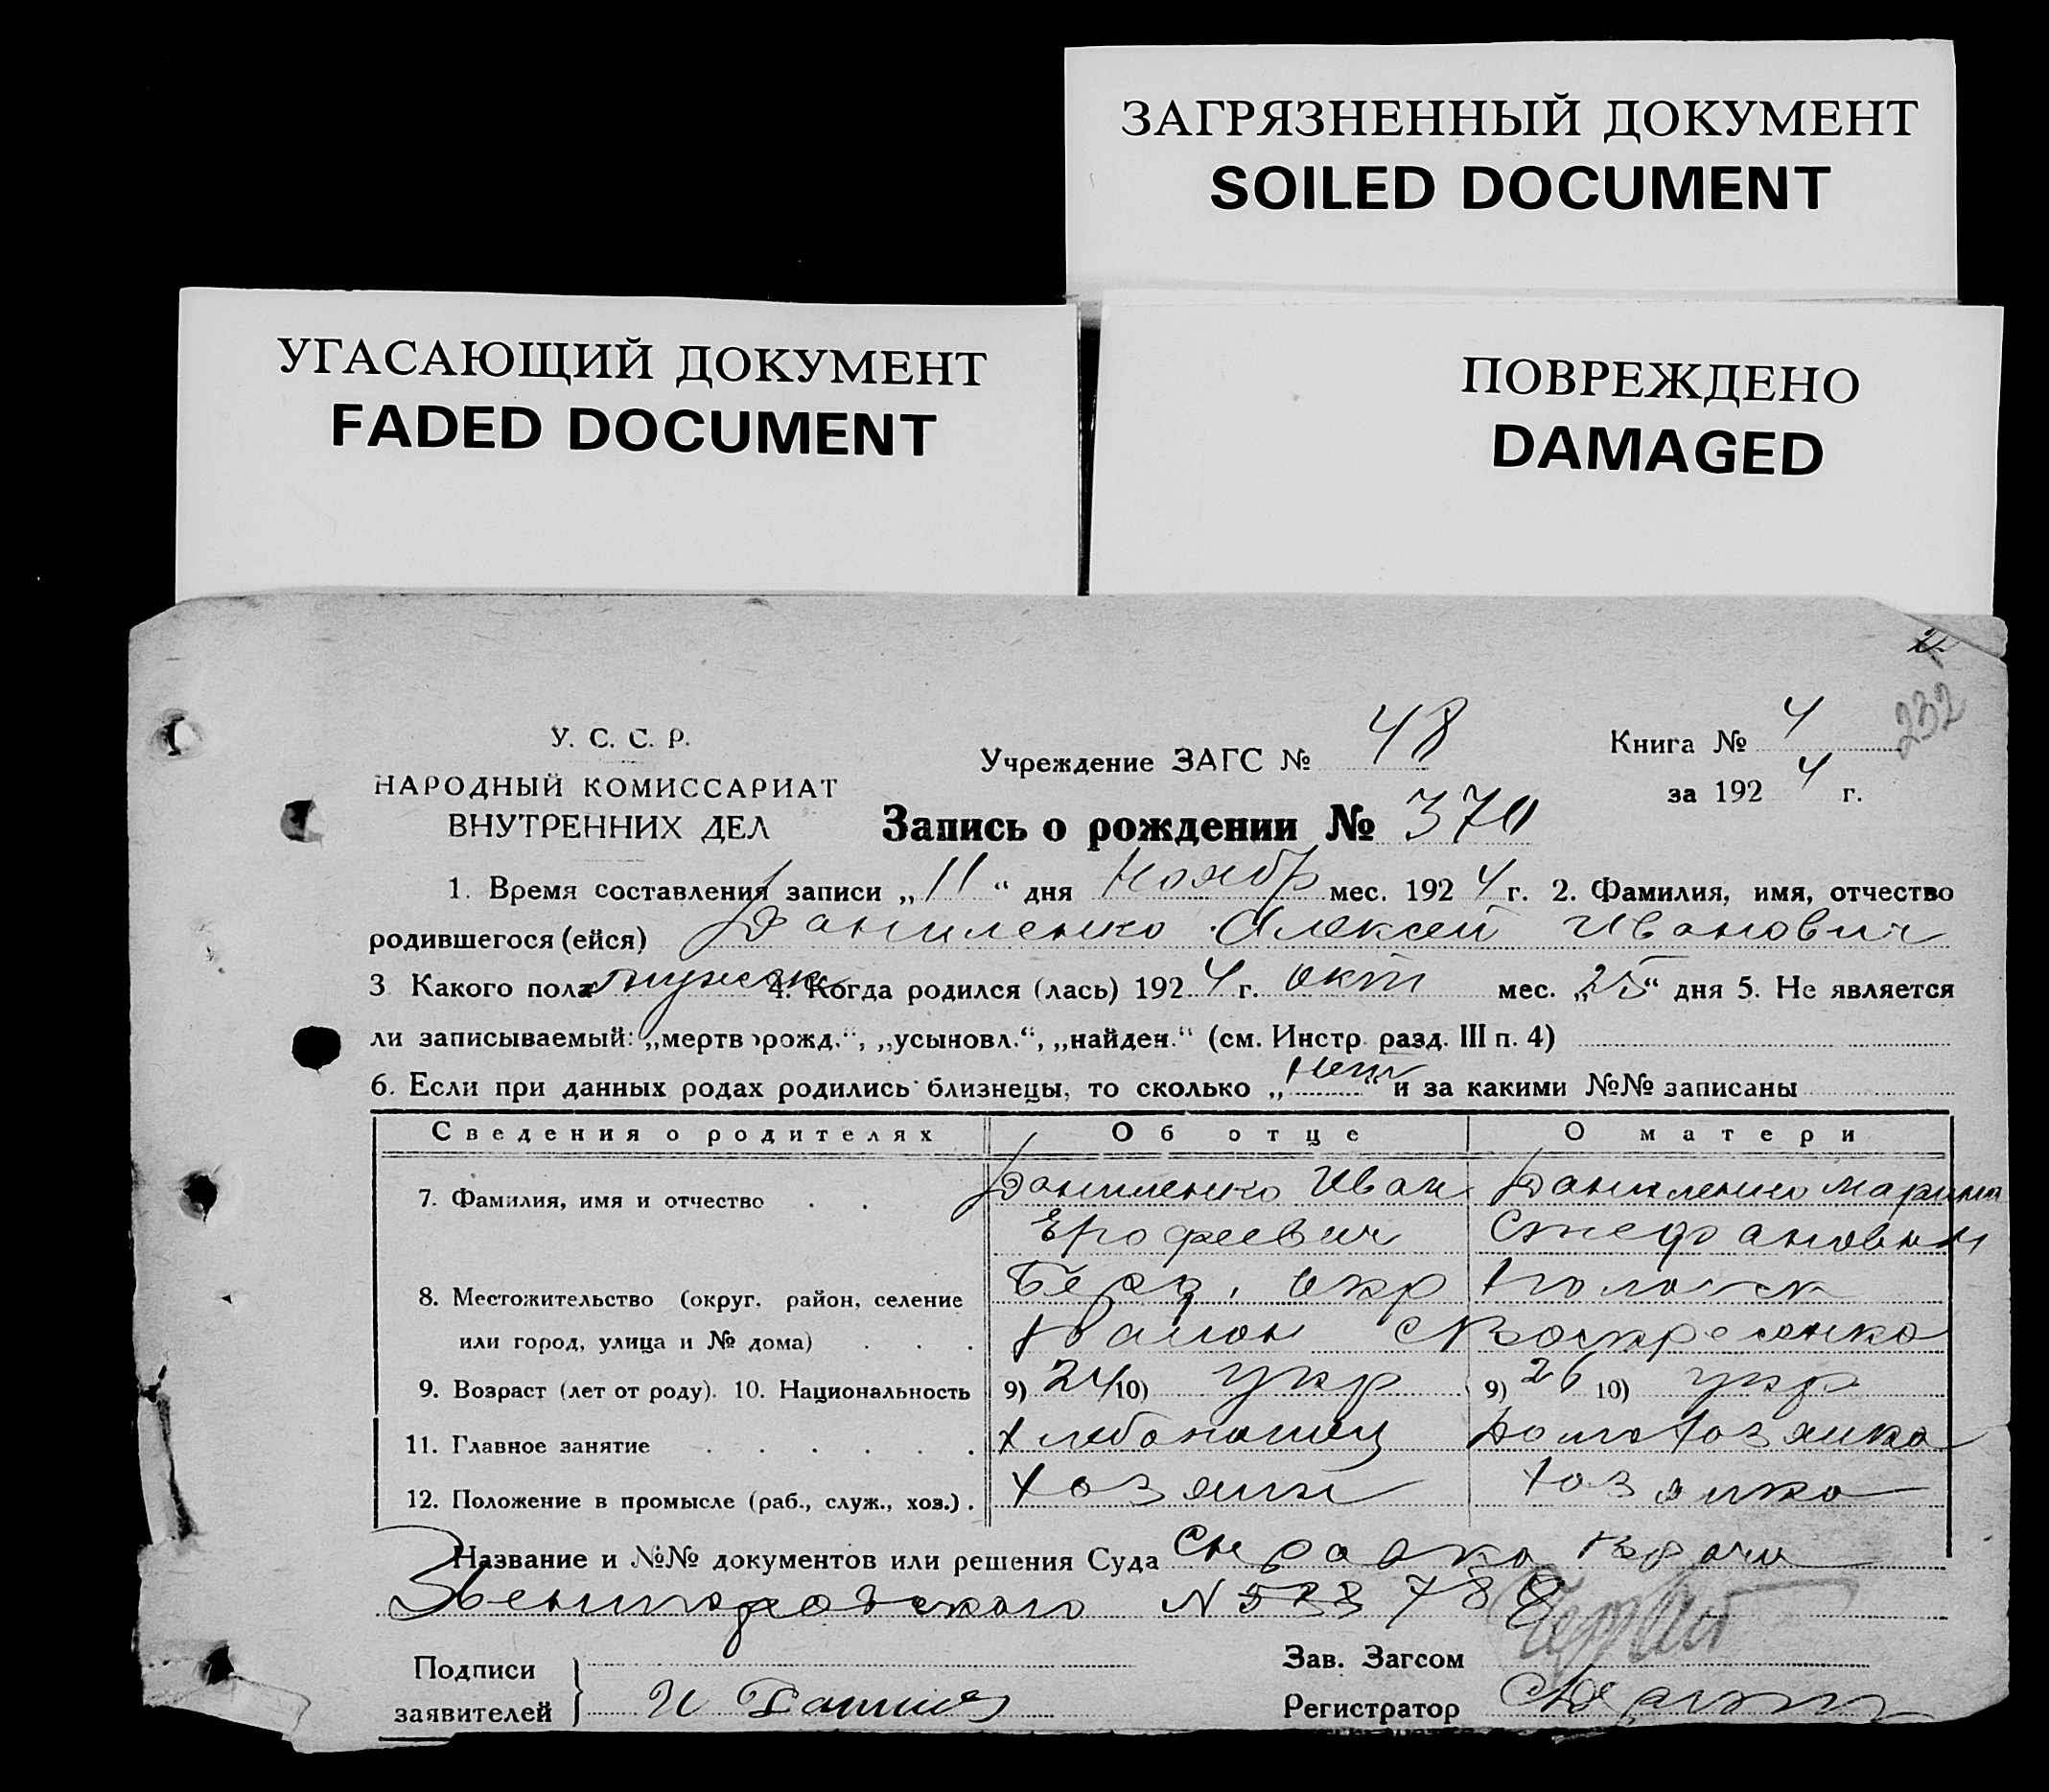 ЗАГРЯЗНЕННЫЙ ДОКУМЕНТ
SOILED DOCUMENT
УГАСАЮЩИЙ ДОКУМЕНТ
FADED DOCUMENT
ПОВРЕЖДЕНО
DAMAGED
232
У. С. С. Р.
НАРОДНЫЙ КОМИССАРИАТ
ВНУТРЕННИХ ДЕЛ
Учреждение ЗАГС № 48
Книга № 4
за 1924 г.
Запись о рождении № 370
1. Время составления записи „11“ дня Ноябр мес. 1924 г. 2. Фамилия, имя, отчество
родившегося (ейся) Даниленко Алексей Иванович
3 Какого пола мужск 4. Когда родился (лась) 1924 г. окт мес. „25“ дня 5. Не является
ли записываемый: „мертворожд.“, „усыновл.“, „найден.“ (см. Инстр. разд. III п. 4)
6. Если при данных родах родились близнецы, то сколько „нет“ и за какими №№ записаны
Сведения о родителях Об отце О матери
7. Фамилия, имя и отчество Даниленко Иван Даниленко Марина
Ерофеевич Стефановна
8. Местожительство (округ, район, селение Берд. окр
или город, улица и № дома) Район с Воскресенка
9. Возраст (лет от роду). 10. Национальность 9) 24 10) укр 9) 26 10) укр
11. Главное занятие хлебопашец домохозяйка
12. Положение в промысле (раб., служ., хоз.) хозяин хозяйка
Название и №№ документов или решения Суда Справка врача
Звенигородского N 533 788
Подписи
заявителей И Данил
Зав. Загсом
Регистратор